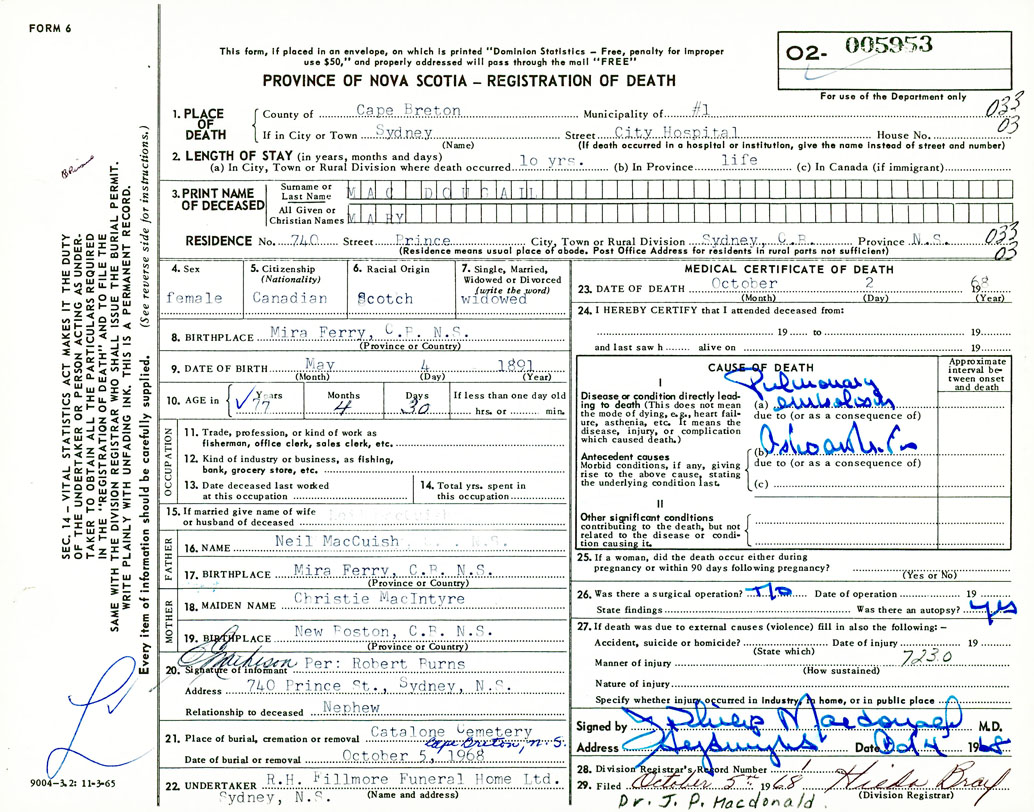 FORM 6
This form, if placed in an envelope, on which is printed "Dominion Statistics – Free, penalty for improper
use $50," and properly addressed will pass through the mail "FREE"
PROVINCE OF NOVA SCOTIA – REGISTRATION OF DEATH
O2- 005953
For use of the Department only
1. PLACE OF DEATH
County of Cape Breton Municipality of #1 033
If in City or Town Sydney Street City Hospital House No. 03
(Name) (If death occurred in a hospital or institution, give the name instead of street and number)
2. LENGTH OF STAY (in years, months and days)
(a) In City, Town or Rural Division where death occurred 10 yrs. (b) In Province life (c) In Canada (if immigrant)
3. PRINT NAME OF DECEASED
Surname or Last Name MAC DOUGALL
All Given or Christian Names MARY
RESIDENCE No. 740 Street Prince City, Town or Rural Division Sydney, C.B. Province N.S. 033
(Residence means usual place of abode. Post Office Address for residents in rural parts not sufficient) 03
4. Sex female
5. Citizenship (Nationality) Canadian
6. Racial Origin Scotch
7. Single, Married, Widowed or Divorced (write the word) widowed
8. BIRTHPLACE Mira Ferry, C.B. N.S.
(Province or Country)
9. DATE OF BIRTH May 4 1891
(Month) (Day) (Year)
10. AGE in Years 77 Months 4 Days 30 If less than one day old
hrs. or min.
OCCUPATION
11. Trade, profession, or kind of work as
fisherman, office clerk, sales clerk, etc.
12. Kind of industry or business, as fishing,
bank, grocery store, etc.
13. Date deceased last worked
at this occupation
14. Total yrs. spent in
this occupation
15. If married give name of wife
or husband of deceased
FATHER
16. NAME Neil MacCuish
17. BIRTHPLACE Mira Ferry, C.B. N.S.
(Province or Country)
MOTHER
18. MAIDEN NAME Christie MacIntyre
19. BIRTHPLACE New Boston, C.B. N.S.
(Province or Country)
20. Signature of informant Per: Robert Burns
Address 740 Prince St., Sydney, N.S.
Relationship to deceased Nephew
21. Place of burial, cremation or removal Catalone Cemetery
Cape Breton, N.S.
Date of burial or removal October 5, 1968
22. UNDERTAKER R.H. Fillmore Funeral Home Ltd.
Sydney, N.S. (Name and address)
MEDICAL CERTIFICATE OF DEATH
23. DATE OF DEATH October 2 1968
(Month) (Day) (Year)
24. I HEREBY CERTIFY that I attended deceased from:
19 to 19
and last saw h alive on 19
CAUSE OF DEATH
Approximate interval between onset and death
I
Disease or condition directly leading to death (This does not mean the mode of dying, e.g., heart failure, asthenia, etc. It means the disease, injury, or complication which caused death.)
Pulmonary
(a) embolism
due to (or as a consequence of)
Antecedent causes
Morbid conditions, if any, giving rise to the above cause, stating the underlying condition last.
(b)
due to (or as a consequence of)
(c)
II
Other significant conditions
contributing to the death, but not
related to the disease or condition causing it.
25. If a woman, did the death occur either during
pregnancy or within 90 days following pregnancy?
(Yes or No)
26. Was there a surgical operation? no Date of operation 19
State findings Was there an autopsy? yes
27. If death was due to external causes (violence) fill in also the following:–
Accident, suicide or homicide? Date of injury 19
(State which) 7230
Manner of injury
(How sustained)
Nature of injury
Specify whether injury occurred in industry, in home, or in public place
Signed by Philip Macdonald M.D.
Address Date Oct 4 1968
28. Division Registrar's Record Number
29. Filed October 5th 1968 Hilda Bray
(Division Registrar)
Dr. J. P. Macdonald
SEC. 14 – VITAL STATISTICS ACT MAKES IT THE DUTY
OF THE UNDERTAKER OR PERSON ACTING AS UNDER-
TAKER TO OBTAIN ALL THE PARTICULARS REQUIRED
IN THE "REGISTRATION OF DEATH" AND TO FILE THE
SAME WITH THE DIVISION REGISTRAR WHO SHALL ISSUE THE BURIAL PERMIT.
WRITE PLAINLY WITH UNFADING INK. THIS IS A PERMANENT RECORD.
Every item of information should be carefully supplied. (See reverse side for instructions.)
9004–3.2: 11-3-65